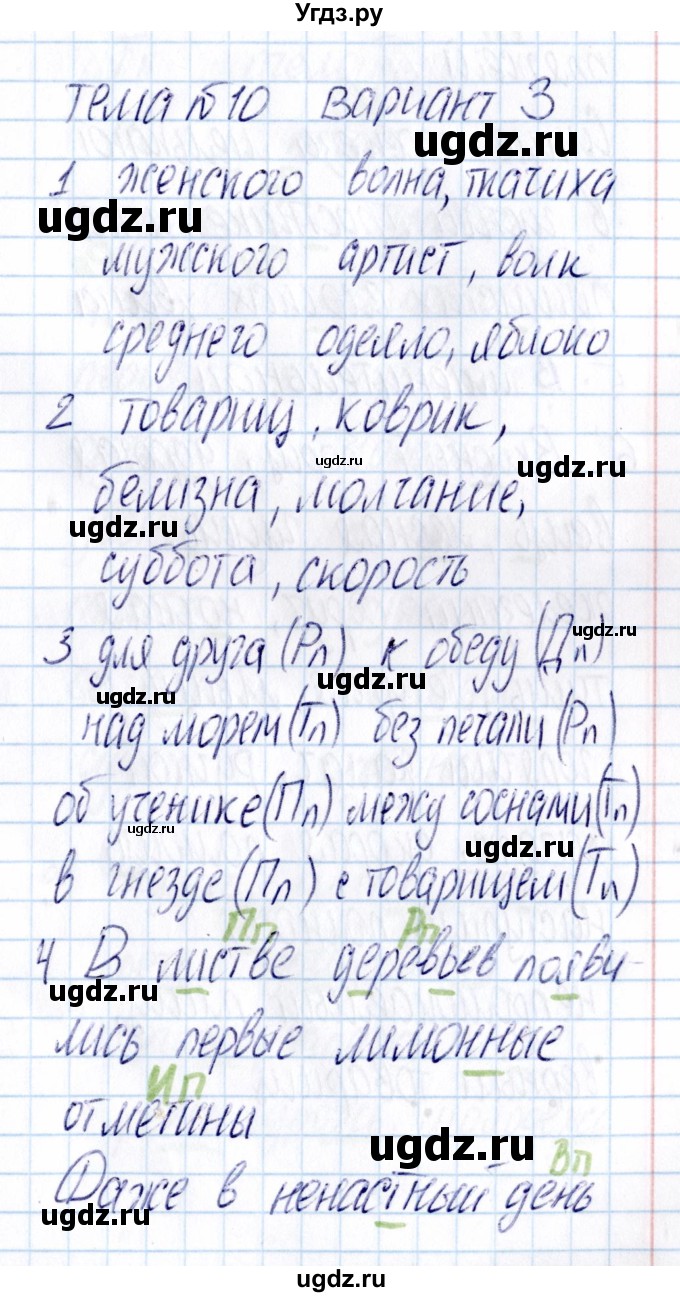 Угдз.ру
Тема №10 Вариант 3
ugdz.ru
1 женского волна, ткачиха
ugdz.ru
мужского артист, волк
среднего одеяло, яблоко
2 товарищ, коврик,
ugdz.ru
ugdz.ru
белизна, молчание,
ugdz.ru
суббота, скорость
3 для друга (Рп) к обеду (Дп)
ugdz.ru
ugdz.ru
ugdz.ru
над морем (Тп) без печали (Рп)
об ученике (Пп) между соснами (Тп)
ugdz.ru
ugdz.ru
в гнезде (Пп) с товарищем (Тп)
Пп Рп
4 В листве деревьев появи-
лись первые лимонные
Ип
отметины
ugdz.ru
Вп
Даже в ненастный день
ugdz.ru
ugdz.ru